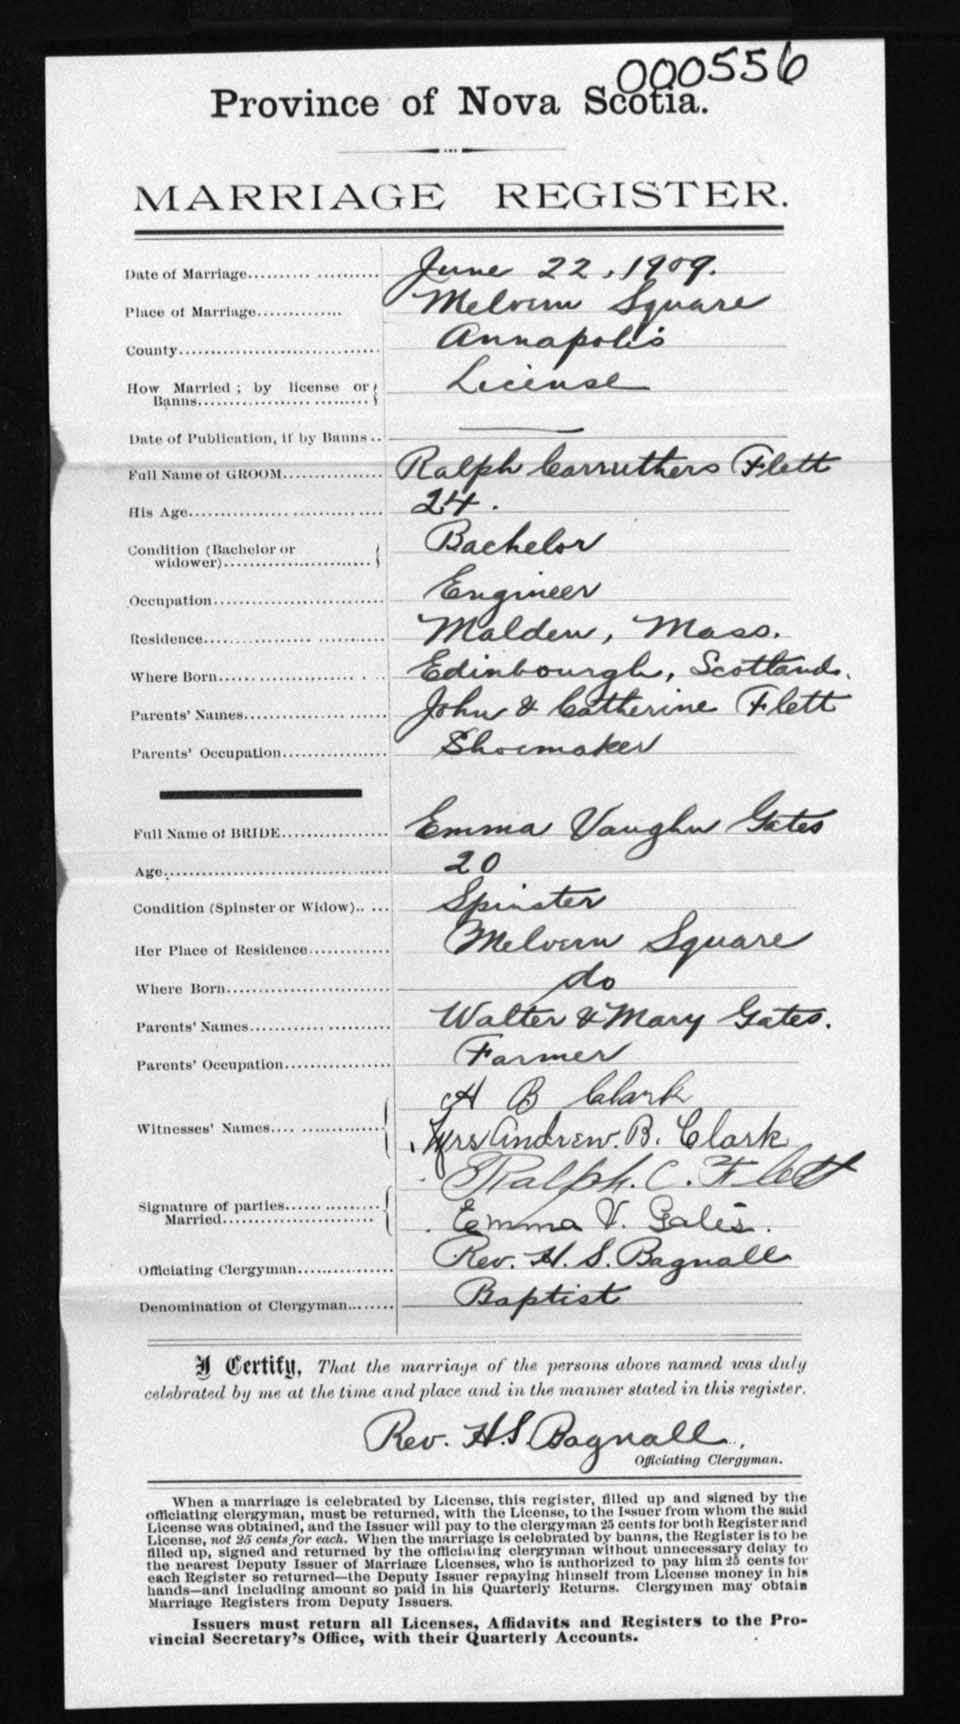 000556
Province of Nova Scotia.
MARRIAGE REGISTER.
Date of Marriage.......... June 22, 1909.
Place of Marriage.......... Melvern Square
County.......... Annapolis
How Married ; by license or
Banns.......... License
Date of Publication, if by Banns.. —
Full Name of GROOM.......... Ralph Carruthers Flett
His Age.......... 24.
Condition (Bachelor or
widower).......... Bachelor
Occupation.......... Engineer
Residence.......... Malden, Mass.
Where Born.......... Edinbourgh, Scotland.
Parents' Names.......... John & Catherine Flett
Parents' Occupation.......... Shoemaker
Full Name of BRIDE.......... Emma Vaughn Gates
Age.......... 20
Condition (Spinster or Widow).. ... Spinster
Her Place of Residence.......... Melvern Square
Where Born.......... do
Parents' Names.......... Walter & Mary Gates.
Parents' Occupation.......... Farmer
A B Clark
Witnesses' Names.......... Mrs Andrew. B. Clark
Ralph. C. Flett
Signature of parties
Married.......... Emma V. Gates.
Officiating Clergyman.......... Rev. H. S. Bagnall
Denomination of Clergyman........ Baptist
I Certify, That the marriage of the persons above named was duly
celebrated by me at the time and place and in the manner stated in this register.
Rev. H. S. Bagnall
Officiating Clergyman.
When a marriage is celebrated by License, this register, filled up and signed by the
officiating clergyman, must be returned, with the License, to the Issuer from whom the said
License was obtained, and the Issuer will pay to the clergyman 25 cents for both Register and
License, not 25 cents for each. When the marriage is celebrated by banns, the Register is to be
filled up, signed and returned by the officiating clergyman without unnecessary delay to
the nearest Deputy Issuer of Marriage Licenses, who is authorized to pay him 25 cents for
each Register so returned—the Deputy Issuer repaying himself from License money in his
hands—and including amount so paid in his Quarterly Returns. Clergymen may obtain
Marriage Registers from Deputy Issuers.
Issuers must return all Licenses, Affidavits and Registers to the Pro-
vincial Secretary's Office, with their Quarterly Accounts.